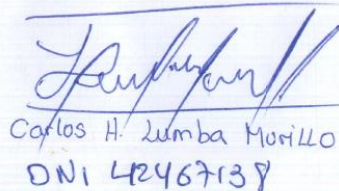 Carlos H. Lumba Murillo
DNI 42467138